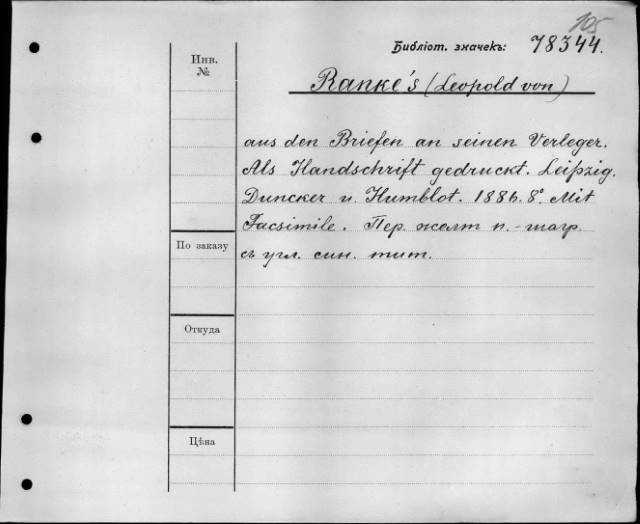 105
Библіот. значекъ: 78344.
Инв.
№
Ranke's (Leopold von)
aus den Briefen an seinen Verleger.
Als Handschrift gedruckt. Leipzig.
Duncker u. Humblot. 1886. 8°. Mit
Facsimile. Пер. желт п.-шагр.
съ угл. син. тит.
По заказу
Откуда
Цѣна